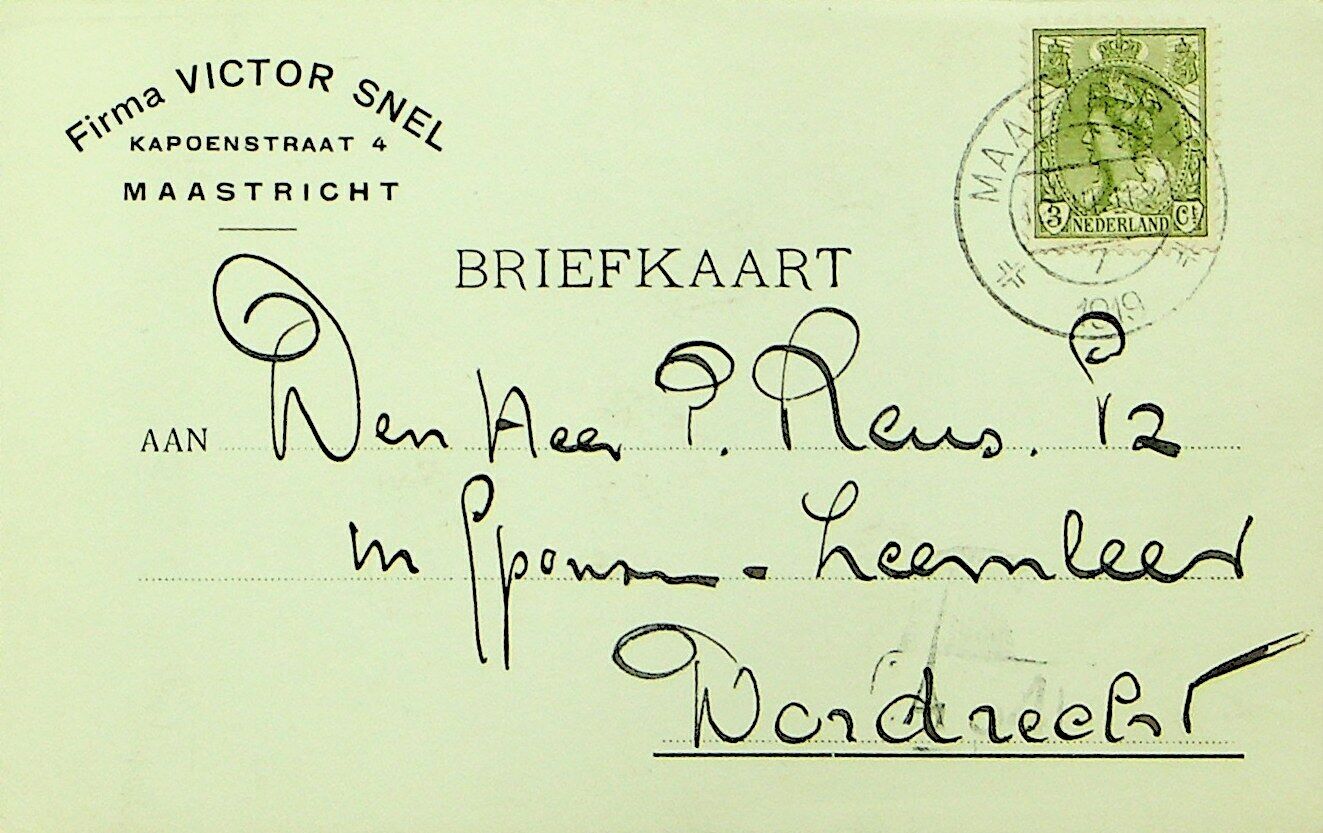 Firma VICTOR SNEL
KAPOENSTRAAT 4
MAASTRICHT
3 Ct
NEDERLAND
1919
BRIEFKAART
AAN Den Heer P. Reus. Pz
in Spons - Leemleer
Dordrecht